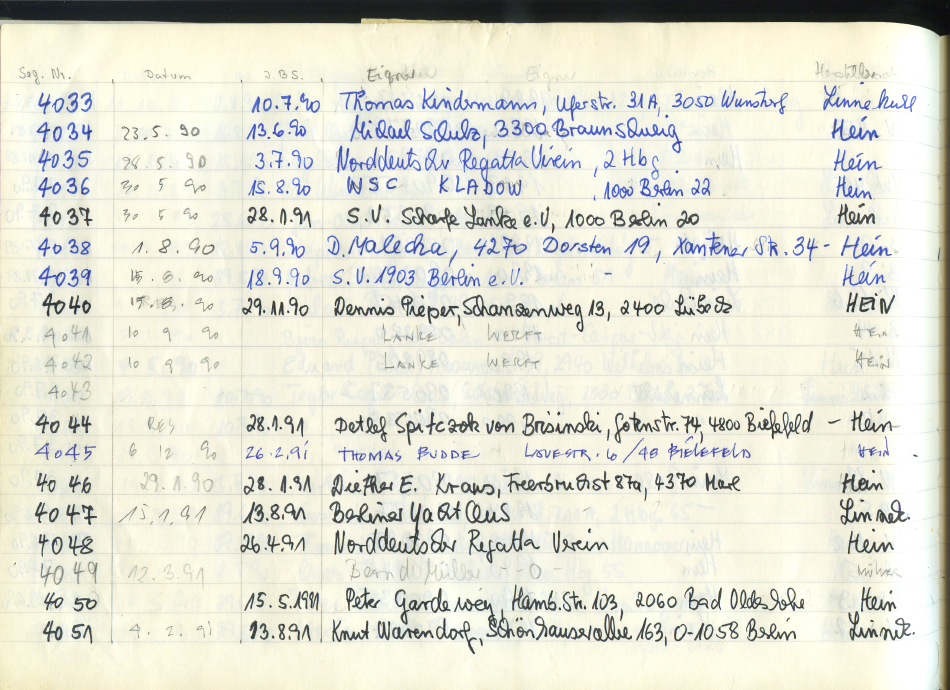 Seg. Nr. Datum J.B.S. Eigner
4033 10.7.90 Thomas Kindermann, Uferstr. 31A, 3050 Wunstorf
4034 23.5.90 13.6.90 Michael Schulz, 3300 Braunschweig Hein
4035 5.90 3.7.90 Norddeutscher Regatta Verein, 2 Hbg Hein
4036 30 5 90 15.8.90 WSC KLADOW, 1000 Berlin 22 Hein
4037 30 5 90 28.1.91 S.V. Scharfe Lanke e.V, 1000 Berlin 20 Hein
4038 1.8.90 5.9.90 D. Malecha, 4270 Dorsten 19, Xantener Str. 34 - Hein
4039 8.90 18.9.90 S.V. 1903 Berlin e.V. - Hein
4040 8. 90 29.11.90 Dennis Pieper, Schanzenweg 13, 2400 Lübeck HEIN
4041 10 9 90 LANKE WERFT HEIN
4042 10 9 90 LANKE WERFT HEIN
4043
4044 RES 28.1.91 Detlef Spitczok von Brisinski, Gotenstr. 74, 4800 Bielefeld - Hein
4045 6 12 90 26.2.91 THOMAS BUDDE 6/48 BIELEFELD HEIN
4046 29.1.90 28.1.91 Diether E. Kraus, 87a, 4370 Marl Hein
4047 15.1.91 13.8.91 Berliner Yacht Club Linnek.
4048 26.4.91 Norddeutscher Regatta Verein Hein
4049 12.3.91 Bernd Müller - O -
4050 15.5.1991 Peter Gardewey, Hamb. Str. 103, 2060 Bad Oldesloe Hein
4051 4.2.91 13.8.91 Knut Warendorf, Schönhauserallee 163, O-1058 Berlin Linnek.